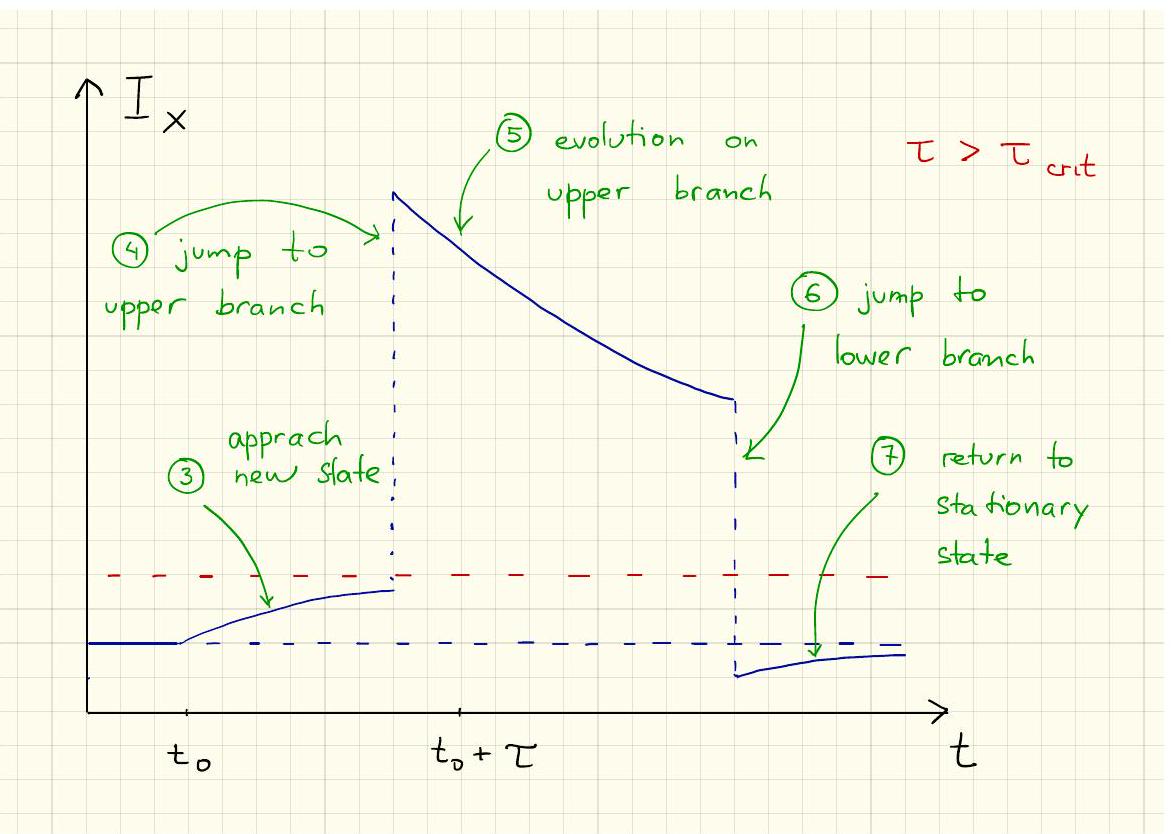 I x
τ > τ crit
⑤ evolution on
upper branch
④ jump to
upper branch
⑥ jump to
lower branch
③ apprach
new state
⑦ return to
stationary
state
t₀
t₀ + τ
t